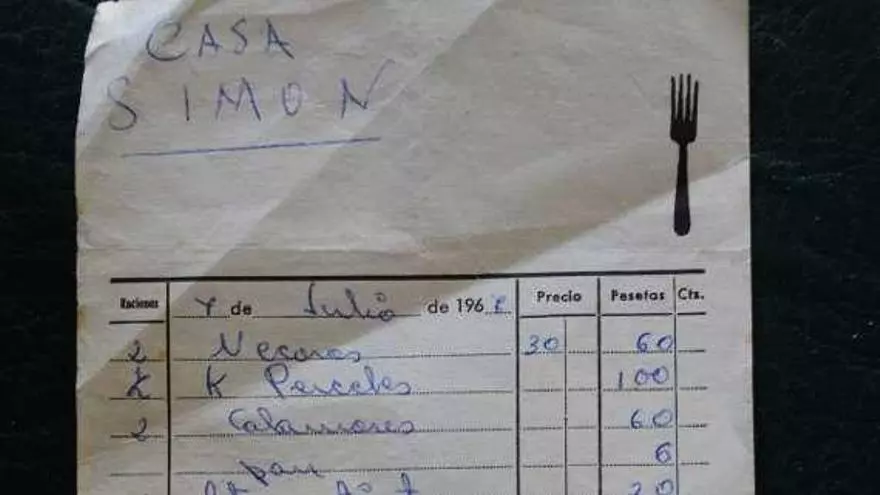 CASA
SIMON
Raciones 7 de Julio de 196 Precio Pesetas Cts.
2 Necoras 30 60
K Percebes 100
2 Calamares 60
pan 6
20